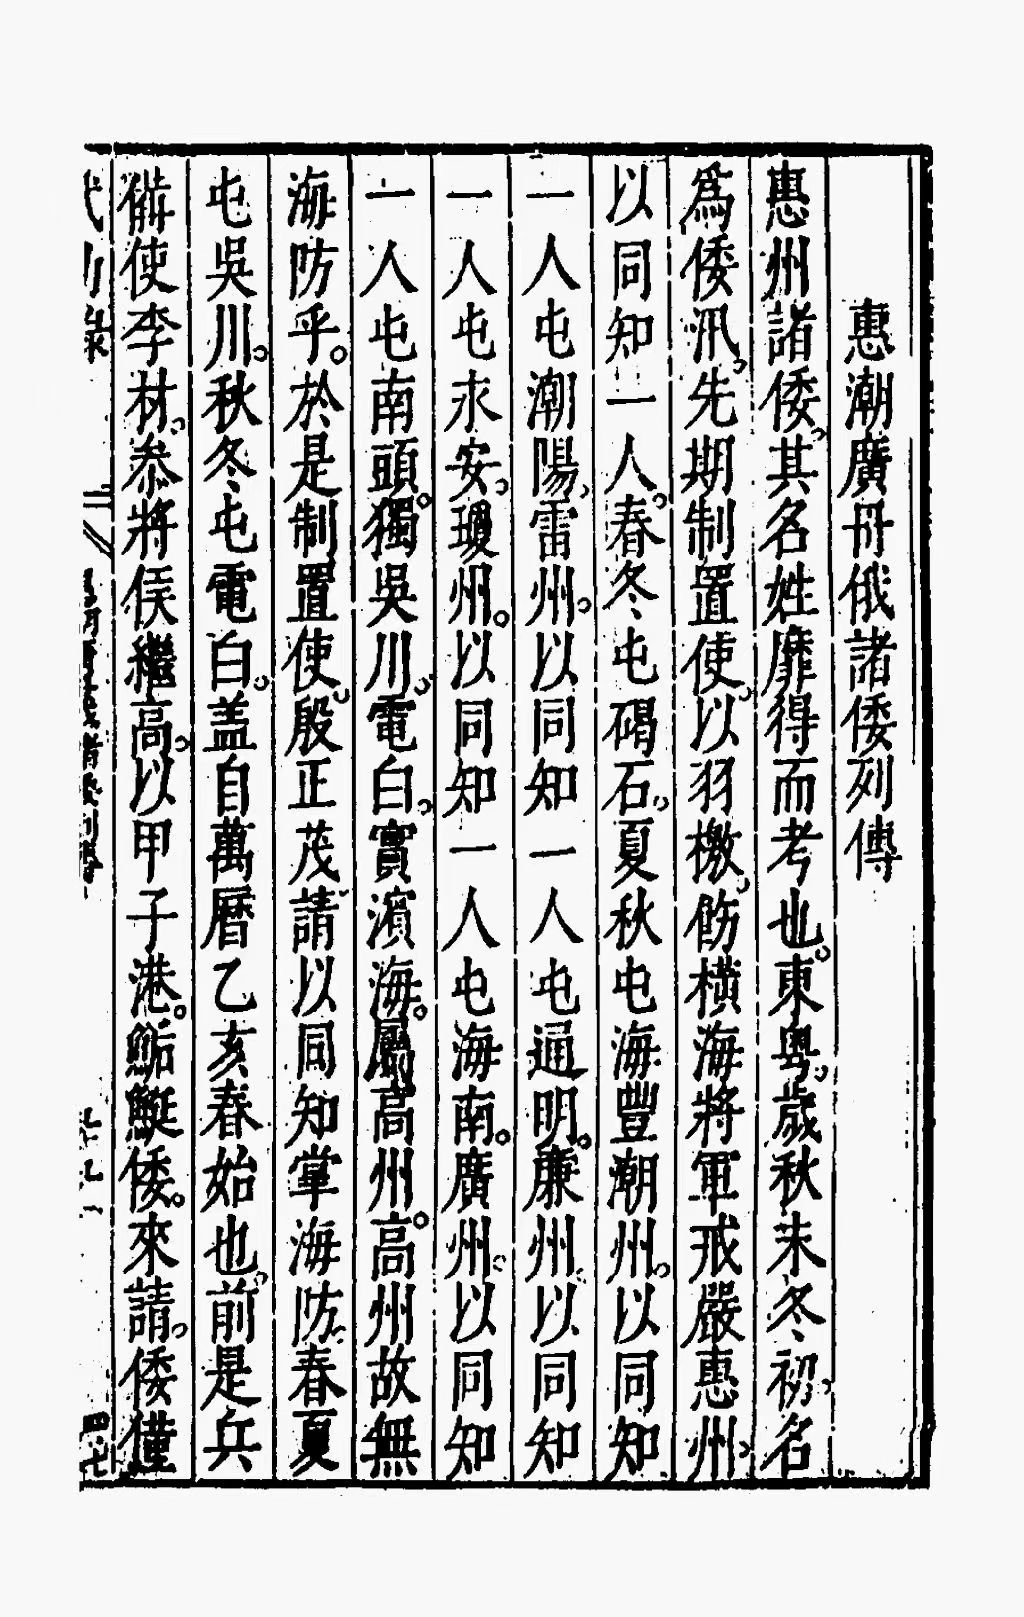 惠潮廣冊俄諸倭列傳
惠州諸倭其名姓靡得而考也東粤歲秋末冬初名
爲倭汛先期制置使以羽檄飭橫海將軍戒嚴惠州
以同知一人春冬屯碣石夏秋屯海豐潮州以同知
一人屯潮陽雷州以同知一人屯通明廉州以同知
一人屯永安瓊州以同知一人屯海南廣州以同知
一人屯南頭獨吳川電白實濱海屬高州高州故無
海防乎於是制置使殷正茂請以同知掌海防春夏
屯吳川秋冬屯電白盖自萬曆乙亥春始也前是兵
備使李材叅將侯繼高以甲子港鮜艇倭來請倭僅